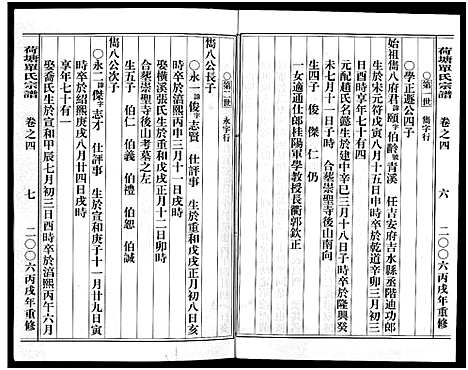 荷塘單氏宗譜 卷之四 六 二〇〇六丙戌年重修
○第一世 儁字行
○學正遜公四子
始祖儁八府君諱頤字伯齡號青溪 任吉安府吉水縣丞階迪功郎
生於宋元符戊寅八月十五日申時卒於乾道辛卯三月初三
日酉時享年七十有四
元配趙氏名懿生於建中辛巳三月十八子時卒於隆興癸
未七月十一日子時 合葬崇聖寺後山南向
生四子 俊 傑 仁 仍
一女適通仕郎桂陽軍學教授長衢郭欽正
○第二世 永字行
儁八公長子
○永一諱俊字志賢 仕評事 生於重和戊戌正月初八日亥
時卒於淳熙丙申三月十一日戌時
娶橫溪張氏生於重和戊戌正月十二日卯時
合葬崇聖寺後山考墓之左
生五子 伯仁 伯義 伯禮 伯恕 伯誠
儁八公次子
○永二諱傑字志才 仕評事 生於宣和庚子十一月廿九日寅
時卒於紹熙庚戌八月廿四日戌時
享年七十有一
娶喬氏生於宣和甲辰七月初三日酉時卒於淳熙丙午六月
荷塘單氏宗譜 卷之四 七 二〇〇六丙戌年重修